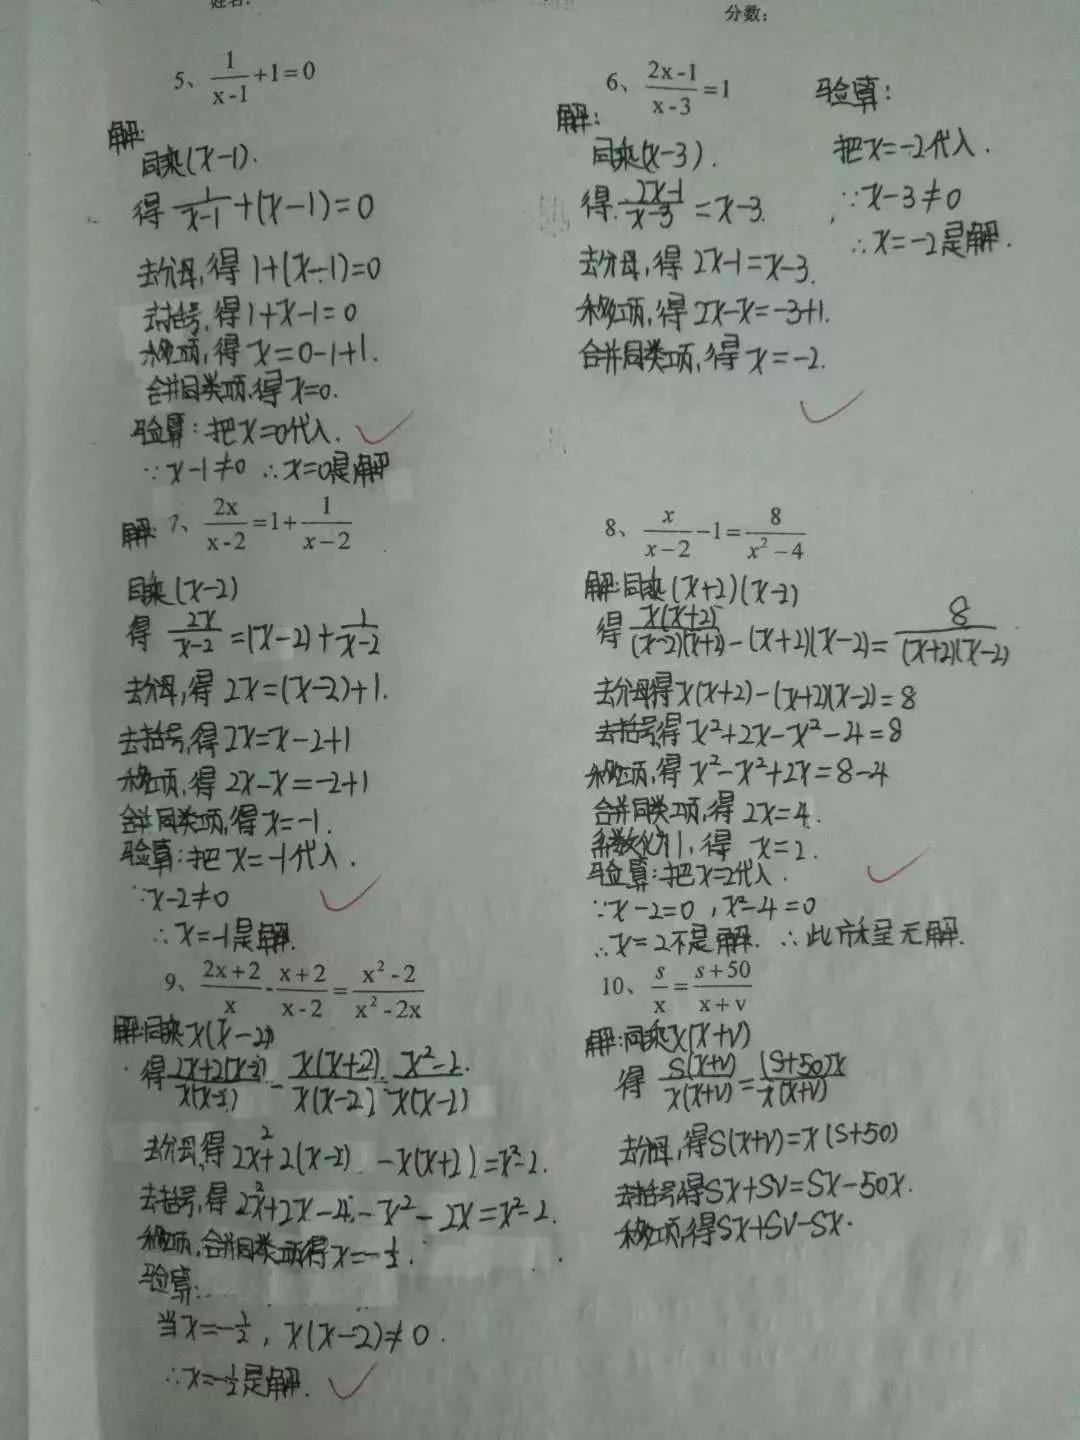 姓名:
分数:
5、1/(x-1)+1=0
解:
同乘(x-1).
得 1/(x-1)+(x-1)=0
去分母,得 1+(x-1)=0
去括号,得1+x-1=0
移项,得 x=0-1+1.
合并同类项,得 x=0.
验算:把x=0代入.
∵x-1≠0 ∴x=0是解
6、(2x-1)/(x-3)=1
解:
同乘(x-3).
得.(2x-1)/(x-3)=x-3.
去分母,得 2x-1=x-3.
移项,得 2x-x=-3+1.
合并同类项,得 x=-2.
验算:
把x=-2代入.
∵x-3≠0
∴x=-2是解.
解:7、2x/(x-2)=1+1/(x-2)
同乘(x-2)
得 2x/(x-2)=(x-2)+1/(x-2)
去分母,得 2x=(x-2)+1.
去括号,得2x=x-2+1
移项,得 2x-x=-2+1
合并同类项,得x=-1.
验算:把 x=-1代入.
∵x-2≠0
∴x=-1是解.
8、x/(x-2)-1=8/(x²-4)
解:同乘(x+2)(x-2)
得 x(x+2)/(x-2)(x+2)-(x+2)(x-2)=8/(x+2)(x-2)
去分母得x(x+2)-(x+2)(x-2)=8
去括号,得x²+2x-x²-4=8
移项,得 x²-x²+2x=8-4
合并同类项,得 2x=4.
系数化为1,得 x=2.
验算:把x=2代入.
∵x-2=0,x²-4=0
∴x=2不是解. ∴此方程无解.
9、(2x+2)/x-(x+2)/(x-2)=(x²-2)/(x²-2x)
解:同乘x(x-2)
得 2x+2(x-2)/x(x-2)-x(x+2)/x(x-2)=x²-2./x(x-2)
去分母,得 2x²+2(x-2)-x(x+2)=x²-2.
去括号,得 2x²+2x-4-x²-2x=x²-2.
移项,合并同类项得x=-1/2.
验算:
当x=-1/2,x(x-2)≠0.
∴x=-1/2是解.
10、s/x=(s+50)/(x+v)
解:同乘x(x+v)
得 s(x+v)/x(x+v)=(s+50)x/x(x+v)
去分母,得s(x+v)=x(s+50)
去括号,得sx+sv=sx-50x.
移项,得sx+sv-sx.